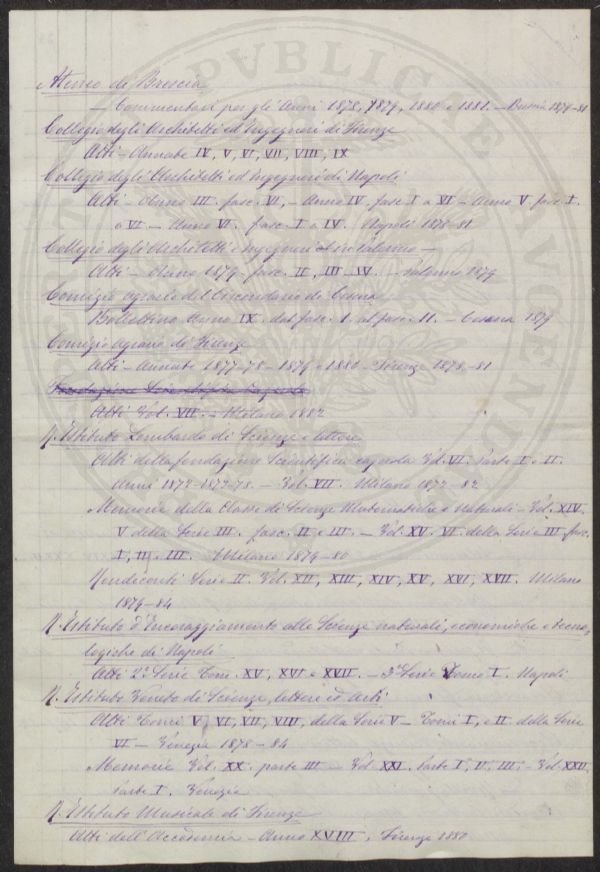 Ateneo di Brescia
— Commentari per gli Anni 1878, 1879, 1880 e 1881. — Brescia 1879-81
Collegio degli Architetti ed Ingegneri di Firenze
Atti — Annate IV, V, VI, VII, VIII, IX
Collegio degli Architetti ed Ingegneri di Napoli
Atti — Anno III. fasc. VII, — Anno IV. fasc I a VI — Anno V. fasc I.
a VI — Anno VI. fasc I a IV. Napoli 1878-81
Collegio degli Architetti e Ingegneri in Palermo —
Atti — Anno 1879 — fasc. II, III — IV. — Palermo 1879
Comizio agrario del Circondario di Cesena
Bollettino Anno IX. dal fasc. 1. al fasc. 11. — Cesena 1879
Comizio Agrario di Firenze
Atti — Annate 1877-78 — 1879 e 1880 — Firenze 1878-81
Fondazione Scientifica Cagnola
Atti Vol. VII. — Milano 1882
R. Istituto Lombardo di Scienze e lettere
Atti della fondazione Scientifica cagnola Vol. VI. Parte I e II.
Anni 1872-1877-78. — Vol. VII. Milano 1872-82
Memorie della Classe di Scienze Matematiche e Naturali — Vol. XIV.
V della Serie III. fasc. II e III. — Vol. XV. VI della Serie III, fasc.
I, II e III. Milano 1879-80
Rendiconti Serie II. Vol. XII, XIII, XIV, XV, XVI, XVII. Milano
1879-84
R. Istituto d'Incoraggiamento alle Scienze naturali, economiche e tecno-
logiche di Napoli
Atti 2ª Serie Tomo XV, XVI e XVII. — 3ª Serie Tomo I. Napoli
R. Istituto Veneto di Scienze, lettere ed arti
Atti Tomi V, VI, VII, VIII, della Serie V — Tomi I, e II. della Serie
VI — Venezia 1878-84
Memorie Vol. XX. parte III — Vol. XXI. Parte I, II, III. — Vol. XXII.
Parte I. Venezia
R. Istituto Musicale di Firenze
Atti dell'Accademia — Anno XVIII. Firenze 1880